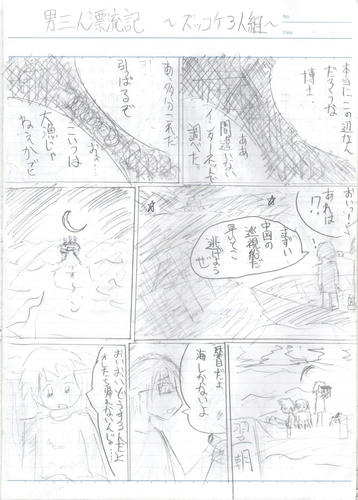 男三人漂流記 ～ズッコケ3人組～
No.
Date
本当にこの辺なん
だろうな
博士．
ああ
間違いない
インターネットで
調べた。
あ、多分これだ
引ばるぞ
おぉ…
こいつは
大漁じゃ
ねえかぜ
おいっ!
あれは
!?
まずい
中国の
巡視船だ
早いとこ
逃げよう
ぜ
翌朝
駄目だよ
海しかないよ
おいおいどうするんだよ
オレたち帰れないんじゃ…